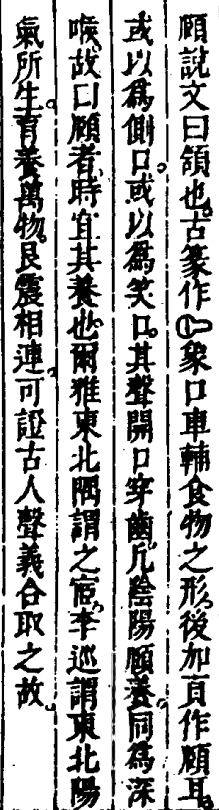 頤說文曰頷也古篆作𦣝象口車輔食物之形後加頁作頤耳
或以爲側口或以爲笑口其聲開口穿齒凡陰陽頤養同爲深
喉故曰頤者時宜其養也爾雅東北隅謂之宧李巡謂東北陽
氣所生育養萬物艮震相連可證古人聲義合取之故